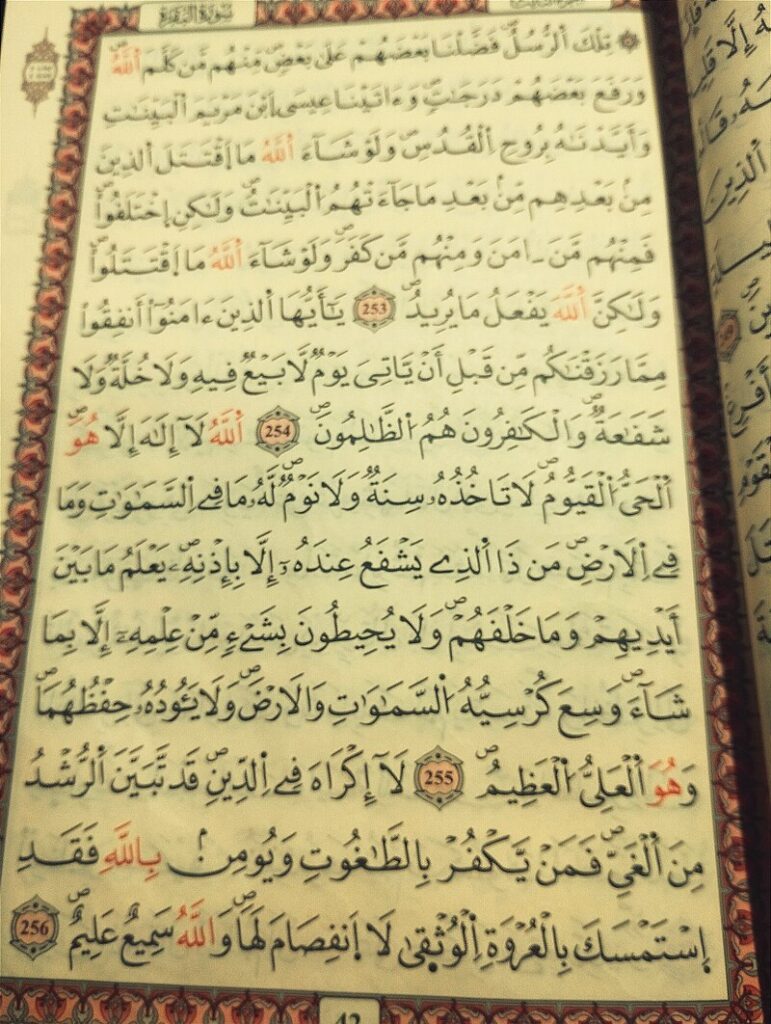 سورة البقرة
تِلْكَ اَ۬لرُّسُلُ فَضَّلْنَا بَعْضَهُمْ عَلَىٰ بَعْضٖ مِّنْهُم مَّن كَلَّمَ اَ۬للَّهُۖ
وَرَفَعَ بَعْضَهُمْ دَرَجَٰتٖۖ وَءَاتَيْنَا عِيسَى اَ۪بْنَ مَرْيَمَ اَ۬لْبَيِّنَٰتِ
وَأَيَّدْنَٰهُ بِرُوحِ اِ۬لْقُدُسِۖ وَلَوْ شَآءَ اَ۬للَّهُ مَا اَ۪قْتَتَلَ اَ۬لذِينَ
مِنۢ بَعْدِهِم مِّنۢ بَعْدِ مَا جَآءَتْهُمُ اُ۬لْبَيِّنَٰتُۖ وَلَٰكِنِ اِ۪خْتَلَفُواْۖ
فَمِنْهُم مَّنَ اٰمَنَ وَمِنْهُم مَّن كَفَرَۖ وَلَوْ شَآءَ اَ۬للَّهُ مَا اَ۪قْتَتَلُواْۖ
وَلَٰكِنَّ اَ۬للَّهَ يَفْعَلُ مَا يُرِيدُۖ 253 يَٰٓأَيُّهَا اَ۬لذِينَ ءَامَنُوٓاْ أَنفِقُواْ
مِمَّا رَزَقْنَٰكُم مِّن قَبْلِ أَنْ يَّاتِيَ يَوْمٞ لَّا بَيْعٞ فِيهِ وَلَا خُلَّةٞ وَلَا
شَفَٰعَةٞۖ وَالْكَٰفِرُونَ هُمُ اُ۬لظَّٰلِمُونَۖ 254 اَ۬للَّهُ لَآ إِلَٰهَ إِلَّا هُوَۖ
اَ۬لْحَيُّ اُ۬لْقَيُّومُۖ لَا تَاخُذُهُۥ سِنَةٞ وَلَا نَوْمٞۖ لَّهُۥ مَا فِے اِ۬لسَّمَٰوَٰتِ وَمَا
فِے اِ۬لَارْضِۖ مَن ذَا اَ۬لذِے يَشْفَعُ عِندَهُۥٓ إِلَّا بِإِذْنِهِۦۖ يَعْلَمُ مَا بَيْنَ
أَيْدِيهِمْ وَمَا خَلْفَهُمْۖ وَلَا يُحِيطُونَ بِشَےْءٖ مِّنْ عِلْمِهِۦٓ إِلَّا بِمَا
شَآءَۖ وَسِعَ كُرْسِيُّهُ اُ۬لسَّمَٰوَٰتِ وَالَارْضَۖ وَلَا يَـُٔودُهُۥ حِفْظُهُمَاۖ
وَهُوَ اَ۬لْعَلِيُّ اُ۬لْعَظِيمُۖ 255 لَآ إِكْرَاهَ فِے اِ۬لدِّينِۖ قَد تَّبَيَّنَ اَ۬لرُّشْدُ
مِنَ اَ۬لْغَيِّۖ فَمَنْ يَّكْفُرْ بِالطَّٰغُوتِ وَيُومِنۢ بِاللَّهِ فَقَدِ
اِ۪سْتَمْسَكَ بِالْعُرْوَةِ اِ۬لْوُثْقَىٰ لَا اَ۪نفِصَامَ لَهَاۖ وَاللَّهُ سَمِيعٌ عَلِيمٌۖ 256
42